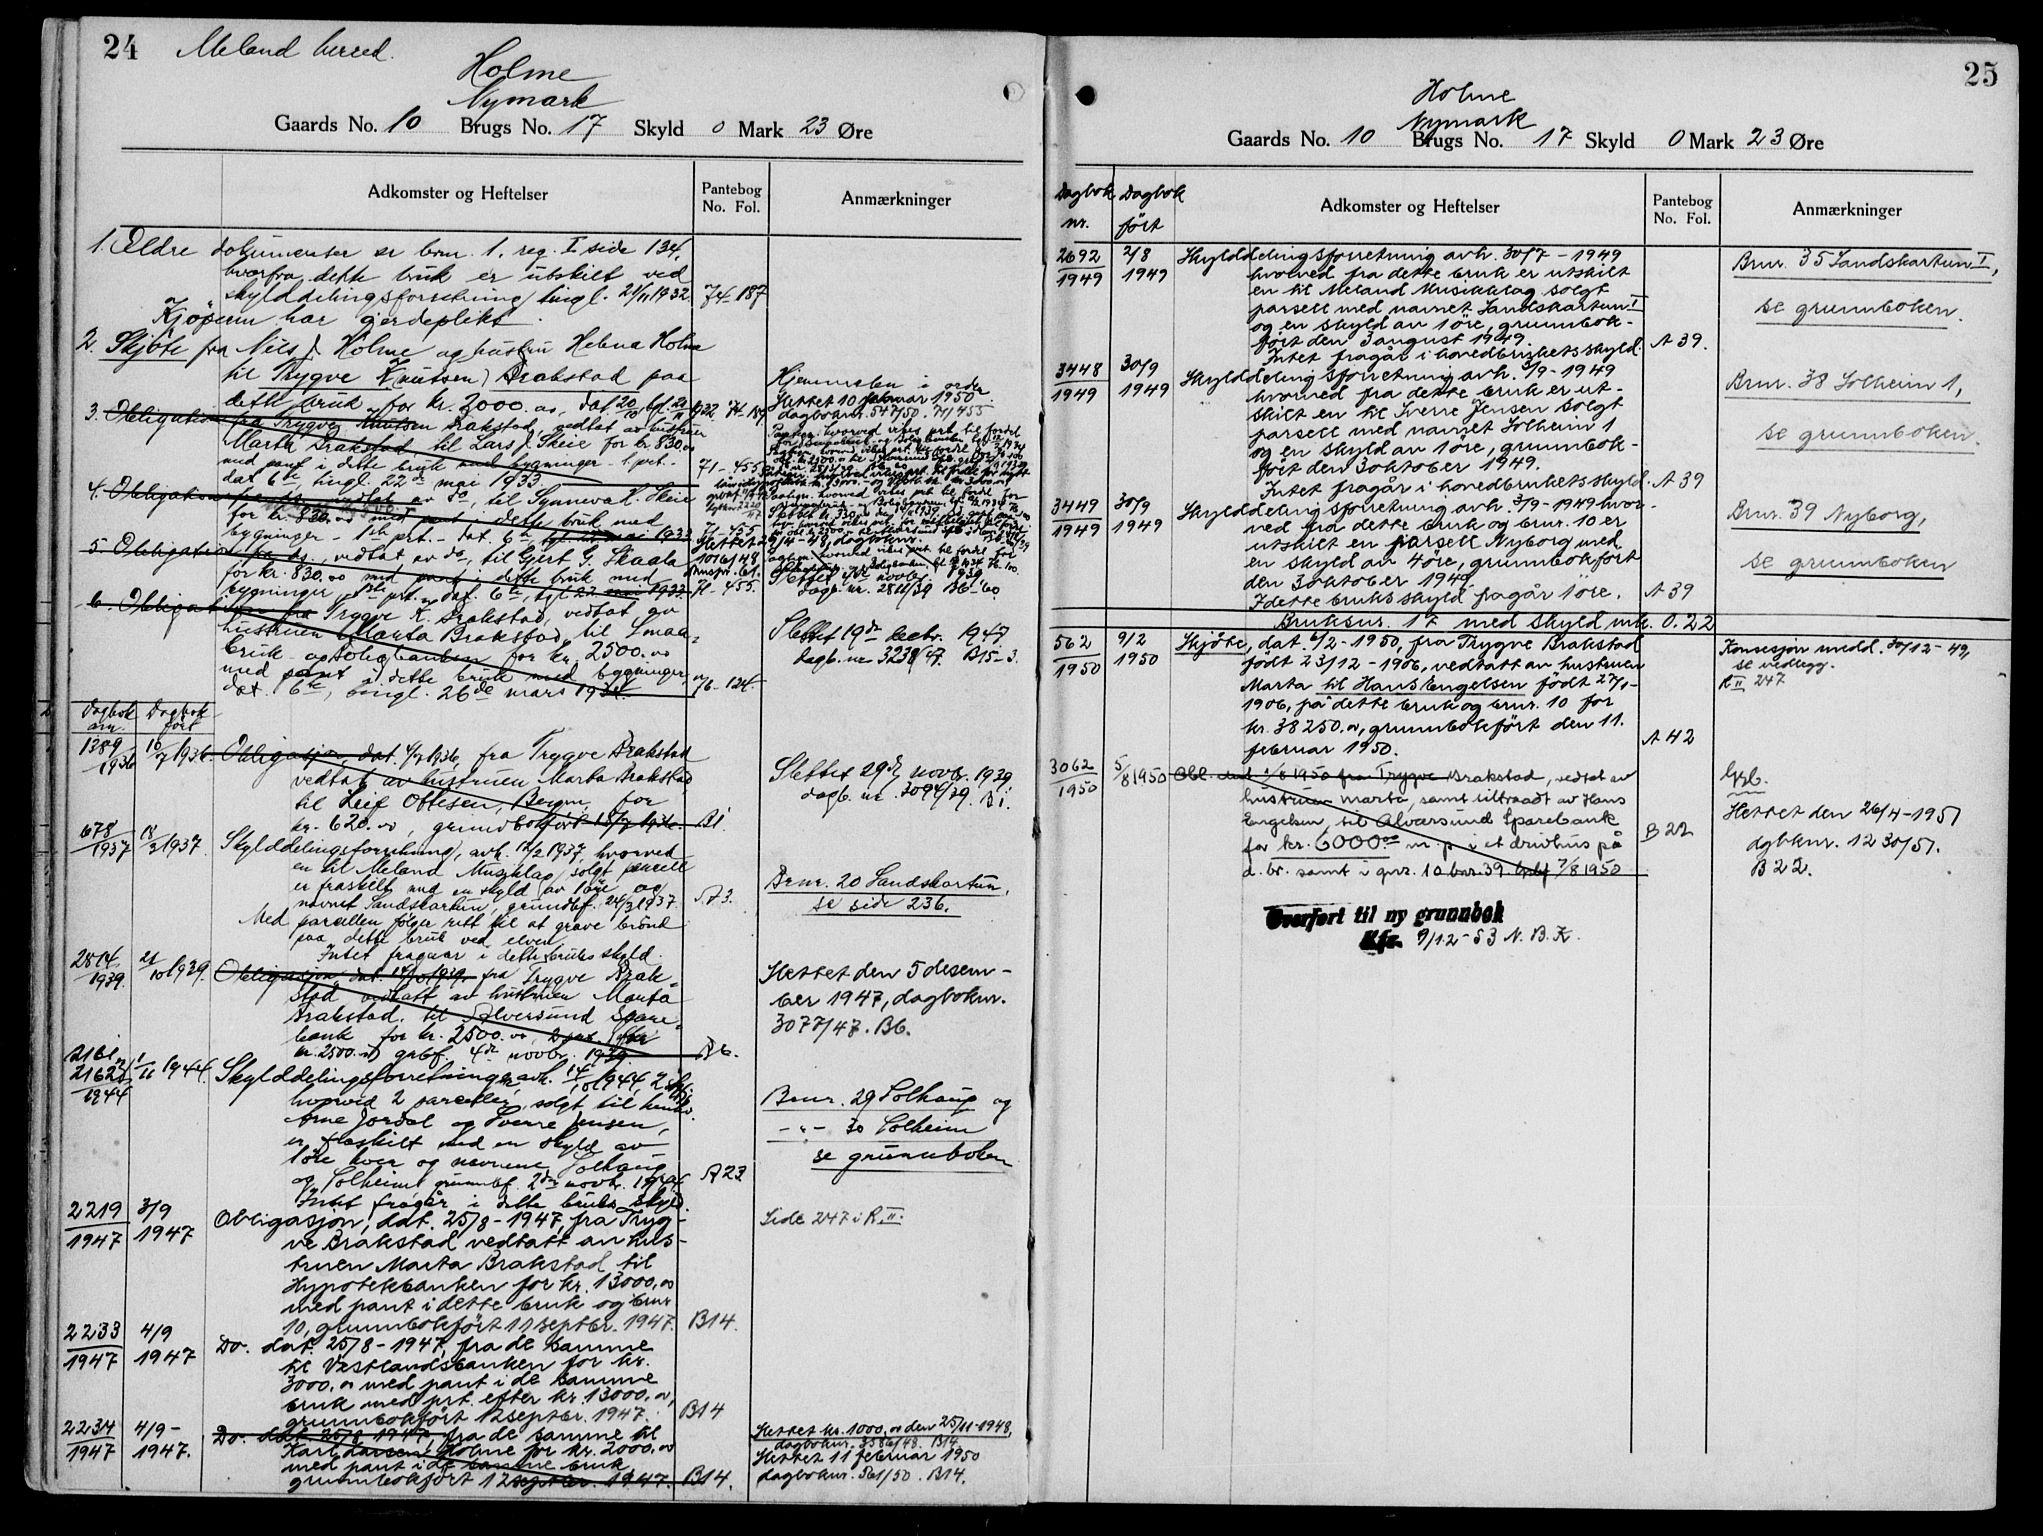 24
Meland herred.
Holme
Nymark
Gaards No. 10 Brugs No. 17 Skyld 0 Mark 23 Øre
Adkomster og Heftelser
Pantebog
No. Fol.
Anmærkninger
1. Ældre dokumenter se brnr. 1. reg. I side 134,
hvorfra dette bruk er utskilt ved
skylddelingsforretning, tingl. 21/11 1932. 74. 187
Kjøperen har gjerdeplikt.
2. Skjøte fra Nils J. Holme og hustru Helena Holme
til Trygve K(nutsen) Brakstad paa
dette bruk for kr. 2000.00, dat. 20/10 tgl. 21/11 1932. 74-187
Hjemmelen i orden
Slettet 10 februar 1950.
dagboknr. 547/50. 71/455
3. Obligation fra Trygve Knutsen Brakstad, vedtat av hustruen
Marta Brakstad, til Lars J. Skeie for kr. 830.00
med pant i dette bruk med bygninger - 1. prt. -
dat. 6te, tingl. 22de mai 1933. 71-455
4. Obligation fra do, vedtat av do, til Synneva K. Skeie
for kr. 830.00 med pant i dette bruk med
bygninger - 1ste prt. - dat. 6te, tgl. 22 mai 1933 71-455
Slettet 29/4-48, dagboknr.
1016/48
5. Obligation fra do, vedtat av do, til Gjert G. Skaala
for kr. 830.00 med pant i dette bruk med
bygninger, 1ste prt. dat. 6te, tgl. 22 mai 1933 71-455.
Slettet 4de novbr. 1939
dagb. nr. 2811/39 B6-60
6. Obligasjon fra Trygve K. Brakstad, vedtat av
hustruen Marta Brakstad, til Smaa-
bruk- og boligbanken for kr. 2500.00
med pant i dette bruk med bygninger
dat. 16de, tingl. 26de mars 1934 76-124.
Slettet 19de decbr. 1947
dagb. nr. 3238/47. B15-3.
Dagbok
nr.
Dagbok
ført
1389
1936
15/7 1936. Obligasjon, dat. 4/7 1936, fra Trygve Brakstad
vedtat av hustruen Marta Brakstad
til Leif Ottesen, Bergen, for
kr. 620.00, grundbokført 18/7 1936. B1.
Slettet 29de novbr. 1939
dagb. nr. 3094/39. B1.
678
1937
18/3 1937. Skylddelingsforretning, avh. 12/2 1937, hvorved
en til Meland Musiklag solgt parcell
er fraskilt med en skyld av 1 øre og
navnet Landskartun, grundbf. 24/3 1937. A3.
Med parcellen følger rett til at grave brønd
paa dette bruk ved elven.
Intet fragaar i dette bruks skyld.
Brnr. 20 Landskartun,
se side 236.
2814
1939.
21/10 1939. Obligasjon, dat. 14/10 1939, fra Trygve Brak-
stad vedtatt av hustruen Marta
Brakstad, til Alversund Spare-
bank for kr. 2500.00, 2 prt. efter
kr. 2500.00 grbf. 4de novbr. 1939. B6.
Slettet den 5 desem-
ber 1947, dagboknr.
3077/47. B6.
2161
2162
1944
1/11 1944. Skylddelingsforretninger, avh. 14/10 1944,
hvorved 2 parceller, solgt til henhv.
Arne Jordal og Sverre Jensen,
er fraskilt med en skyld av
1 øre hver og navnene Solhaug
og Solheim grunnbf. 2den novbr. 1944. A23
Intet fragår i dette bruks skyld.
Brnr. 29 Solhaug og
-"- 30 Solheim
se grunnboken
2219
1947
3/9
1947
Obligasjon, dat. 25/8-1947, fra Tryg-
ve Brakstad vedtatt av hus-
truen Marta Brakstad til
Hypotekbanken for kr. 13000,00
med pant i dette bruk og brnr.
10, grunnbokført 11 septbr. 1947. B14.
Side 247 i R II.
2233
1947
4/9
1947
Do. dat. 25/8-1947, fra de samme
til Vestlandsbanken for kr.
3000,00 med pant i de samme
bruk med prt. efter kr. 13000,00,
grunnbokført 12 septbr. 1947. B14
2234
1947
4/9-
1947.
Do. dat. 25/8 1947, fra de samme til
Karl Larsen Holme for kr. 2000,00
med pant i de samme bruk,
grunnbokført 12 septbr. 1947. B14.
Slettet kr. 1000,00 den 25/11-1948,
dagboknr. 3586/48. B14.
Slettet 11 februar 1950
dagboknr. 561/50. B14.
25
Holme
Nymark
Gaards No. 10 Brugs No. 17 Skyld 0 Mark 23 Øre
Dagbok
nr.
Dagbok
ført
Adkomster og Heftelser
Pantebog
No. Fol.
Anmærkninger
2692
1949
2/8
1949
Skylddelingsforretning avh. 30/7-1949
hvorved fra dette bruk er utskilt
en til Meland Musikklag solgt
parsell med navnet Landskartun I
og en skyld av 1 øre, grunnbok-
ført den 3 august 1949. A 39.
Intet fragår i hovedbrukets skyld.
Brnr. 35 Landskartun I,
se grunnboken.
3448
1949
30/9
1949
Skylddelingsforretning avh. 3/9-1949
hvorved fra dette bruk er ut-
skilt en til Sverre Jensen solgt
parsell med navnet Solheim 1
og en skyld av 1 øre, grunnbok-
ført den 3 oktober 1949.
Intet fragår i hovedbrukets skyld. A 39
Brnr. 38 Solheim 1,
se grunnboken.
3449
1949
30/9
1949
Skylddelingsforretning avh. 3/9-1949 hvor-
ved fra dette bruk og brnr. 10 er
utskilt en parsell Nyborg med
en skyld av 4 øre, grunnbokført
den 3 oktober 1949.
I dette bruks skyld fragår 1 øre. A 39
Brnr. 39 Nyborg,
se grunnboken
Bruksnr. 17 med skyld mk. 0.22
562
1950
9/2
1950
Skjøte, dat. 6/2-1950, fra Trygve Brakstad
født 23/12-1906, vedtatt av hustruen
Marta til Hans Engelsen født 27/1-
1906, på dette bruk og brnr. 10 for
kr. 38250.00, grunnbokført den 11.
februar 1950. A 42
Konsesjon medd. 30/12-49,
se vedlegg.
R II 247
3062
1950
5/8 1950 Obl. dat. 1/8 1950 fra Trygve Brakstad, vedtat av
hustruen Marta, samt tiltraadt av Hans
Engelsen, til Alversund Sparebank
for kr. 6000.00 m. p. i et drivhus på
d. br. samt i gnr. 10 bnr. 39 tgl 7/8 1950
B 22
Slettet den 26/4-1951
dgbknr. 1230/51.
B 22.
Overført til ny grunnbok
9/12-53 N. B. K.